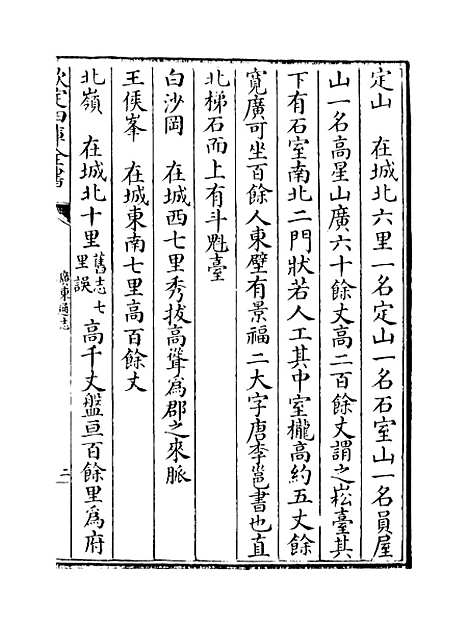 定山　在城北六里一名定山一名石室山一名員屋
山一名高星山廣六十餘丈高二百餘丈謂之崧臺其
下有石室南北二門狀若人工其中室櫳高約五丈餘
寛廣可坐百餘人東壁有景福二大字唐李邕書也直
北梯石而上有斗魁臺
白沙岡　在城西七里秀拔高聳爲郡之來脈
王侯峯　在城東南七里高百餘丈
北嶺　在城北十里舊志七里誤高千丈盤亘百餘里爲府
欽定四庫全書
廣東通志
二